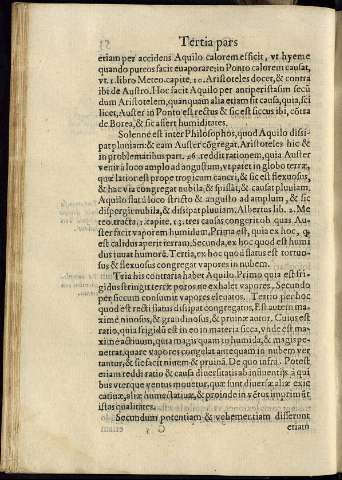 Tertia pars
etiam per accidens Aquilo calorem efficit, vt hyeme
quando puteos facit euaporare, in Ponto calorem causat,
vt. 1. libro Meteo. capite. 10. Aristoteles docet, & contra
ibi de Austro. Hoc facit Aquilo per antiperistasim secũ
dum Aristotelem, quanquam alia etiam sit causa, quia, sci
licet, Auster in Ponto est rectus & sic est siccus ibi, cõtra
de Borea, & sic assert humiditates.
Solenne est inter Philosophos, quod Aquilo dissi-
pat pluuiam: & eam Auster cõgregat. Aristoteles hic &
in problematibus part. 26. reddit rationem, quia Auster
venit à loco amplo ad angustum, vt patet in globo terræ,
quę latior est prope tropicum cancri, & sic est flexuosus,
& hac via congregat nubila, & spissat, & causat pluuiam.
Aquilo flat à loco stricto & angusto ad amplum, & sic
dispergit nubila, & dissipat pluuiam. Albertus lib. 2. Me
teo. tracta. capite. 13. tres causas congerit ob quas Au-
ster facit vaporem humidum. Prima est, quia ex hoc, q̃
est calidus aperit terram. Secunda, ex hoc quod est humi
dus iuuat humorē. Tertia, ex hoc quod flatus est tortuo-
sus & flexuosus congregat vapores in nubem.
Tria his contraria habet Aquilo. Primo quia est fri-
gidus stringit terræ poros ne exhalet vapores. Secundo
per siccum consumit vapores eleuatos. Tertio per hoc
quod est recti flatus dissipat congregatos. Est autem ma-
ximè ninosus, & grandinosus, & proinæ autor. Cuius est
ratio, quia frigidũ est in eo in materia sicca, vnde est ma-
ximè actiuum, quia magis quam in humida, & magis pe-
netrat. quare vapores congelat antequam in nubem ver
tantur, & sic facit niuem & pruinã. De quo infra. Potest
etiam reddi ratio & causa diuersitatis ab aĩnentiis à qui
bus vterque ventus mouetur, quæ sunt diuersæ aliæ exic
catiuæ, aliæ humectatiuæ, & proinde in vẽtus imprimũt
istas qualitates.
Secundum potentiam & vehementiam differunt
G
etiam